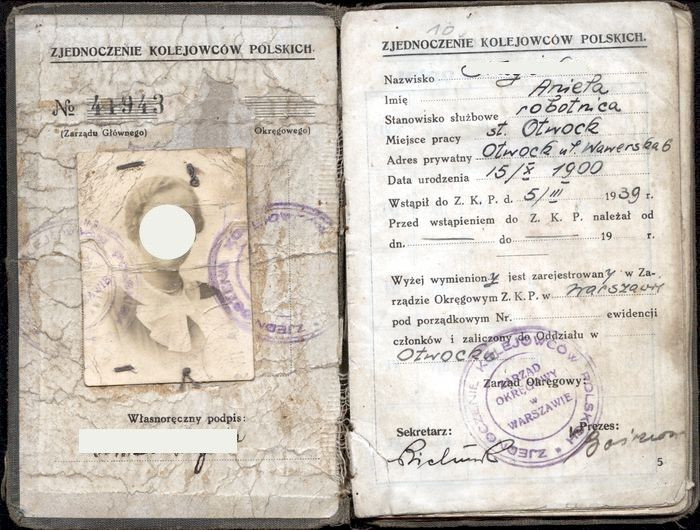 ZJEDNOCZENIE KOLEJOWCÓW POLSKICH.
№ 41943
(Zarządu Głównego) Okręgowego)
Własnoręczny podpis:
10
ZJEDNOCZENIE KOLEJOWCÓW POLSKICH.
Nazwisko
Imię Aniela
Stanowisko służbowe robotnica
Miejsce pracy st. Otwock
Adres prywatny Otwock ul. Wawerska 6
Data urodzenia 15/X 1900
Wstąpił do Z. K. P. d. 5/III 1939 r.
Przed wstąpieniem do Z. K. P. należał od
dn. do 19 r.
Wyżej wymieniony jest zarejestrowany w Za-
rządzie Okręgowym Z. K. P. w Warszawie
pod porządkowym Nr. ewidencji
członków i zaliczony do Oddziału w
Otwocku
Zarząd Okręgowy:
ZJEDNOCZENIE KOLEJOWCÓW POLSKICH
ZARZĄD
OKRĘGOWY
w
WARSZAWIE
Sekretarz: Prezes:
5